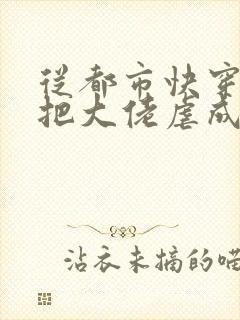 從都市快穿
把大佬虐成
沾衣未摘的喵